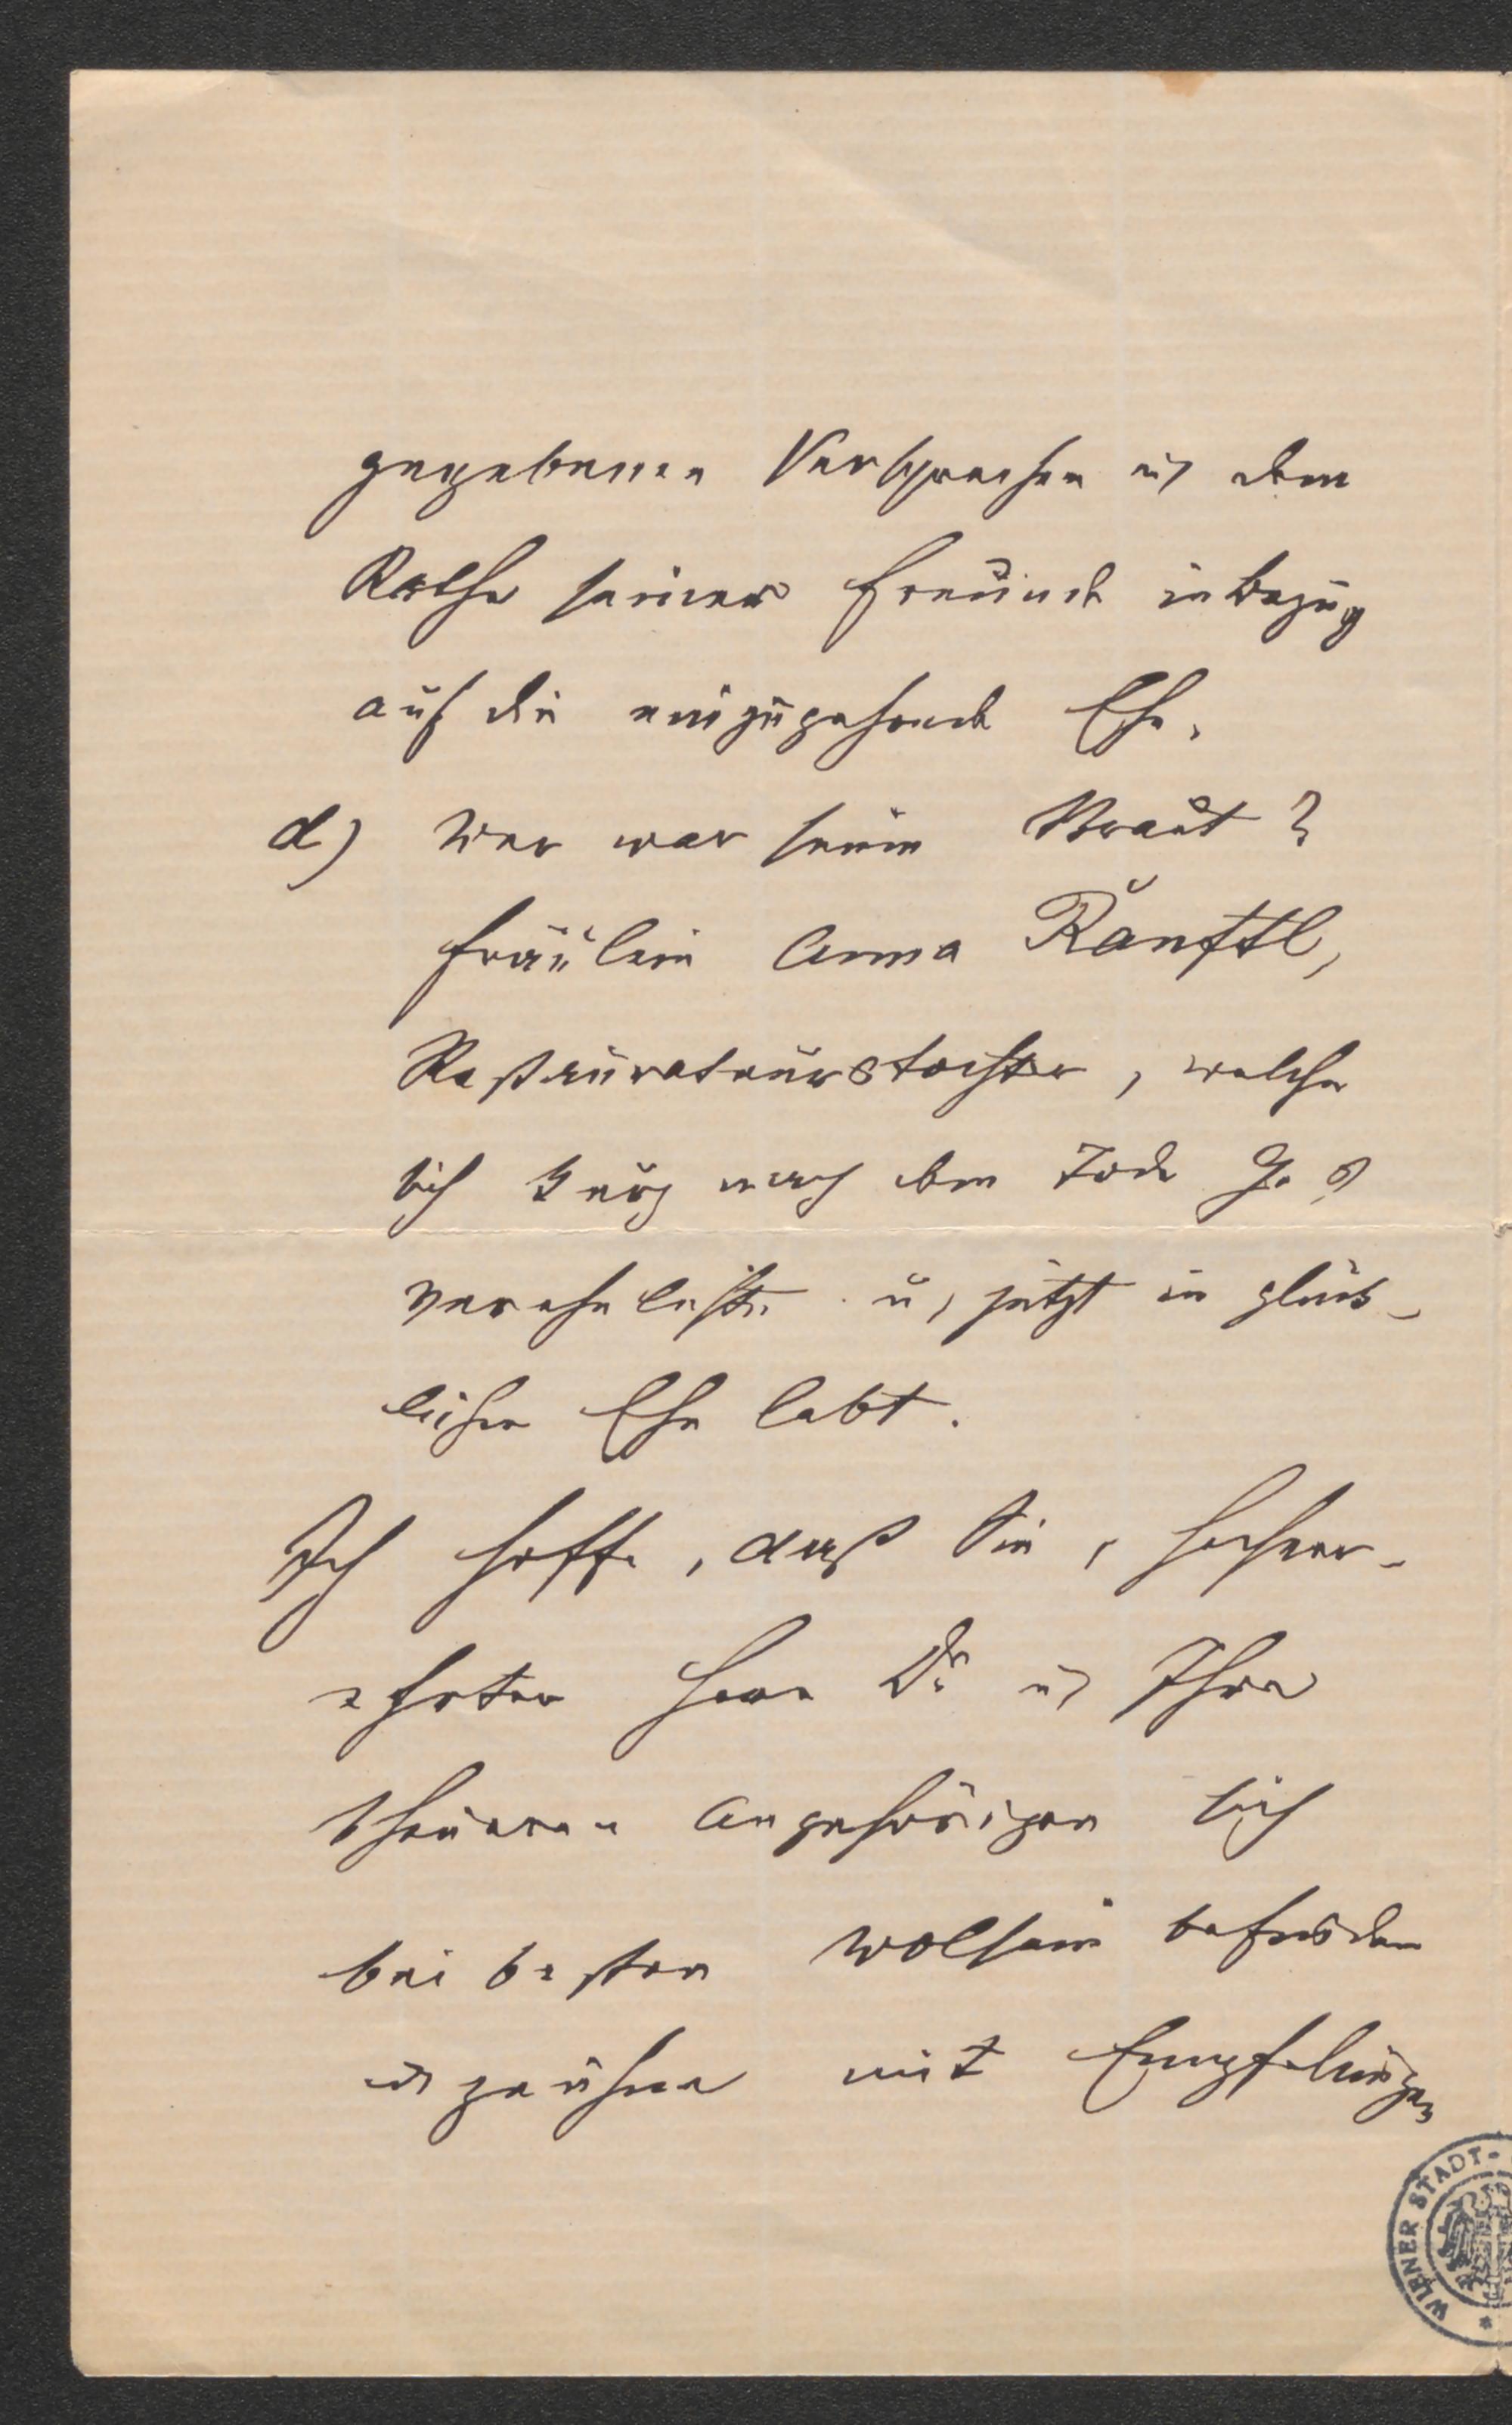 gegebenen Versprechen u dem
Rathe seiner Freunde in bezug
auf die einzugehende Ehe.
d) Wer war seine Braut?
Fräulein Anna Ränftl,
Restaurateurstochter, welche
sich kurz nach dem Tode G.s
verehelichte u, jetzt in glück-
licher Ehe lebt.
Ich hoffe, daß Sie, hochver-
ehrter Herr Dr u Ihre
theueren Angehörigen sich
bei bestem Wolsein befinden
u zeichne mit Empfelungen
WIENER STADT-